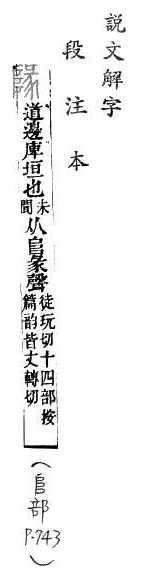 說文解字
段注本
隊 道邊庳垣也未聞从𨸏彖聲徒玩切十四部按篇韵皆丈轉切
(𨸏部 P.743)